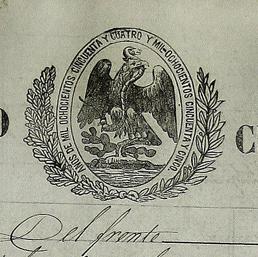 AÑOS DE MIL OCHOCIENTOS CINCUENTA Y CUATRO Y MIL OCHOCIENTOS CINCUENTA Y CINCO.
O
C
Del frente